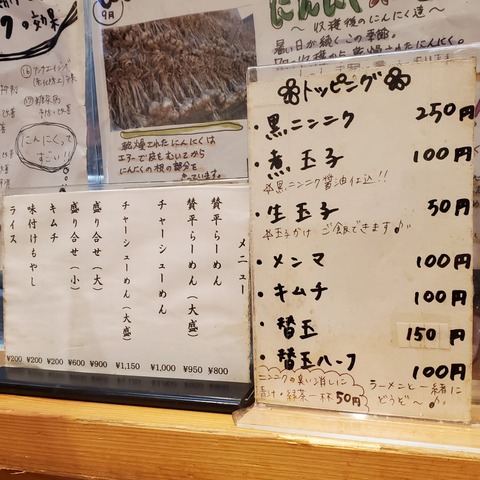 9月
の効果
乾燥されたにんにくは
エアーで皮をむいてから
にんにくの根の部分を
にんにくって
すごい!!
にんにく
〜収穫後のにんにく達〜
暑い日が続くこの季節。
トッピング
・黒ニンニク 250円
・煮玉子 100円
※黒ニンニク醤油仕込!!
・生玉子 50円
※玉子かけご飯できます♪
・メンマ 100円
・キムチ 100円
・替玉 150円
・替玉ハーフ 100円
ニンニクの臭い消しに
青汁・緑茶一杯50円
ラーメンと一緒に
どうぞ〜♪
メニュー
賛平らーめん ¥800
賛平らーめん(大盛) ¥950
チャーシューめん ¥1,000
チャーシューめん(大盛) ¥1,150
盛り合せ(大) ¥900
盛り合せ(小) ¥600
キムチ ¥200
味付けもやし ¥200
ライス ¥200